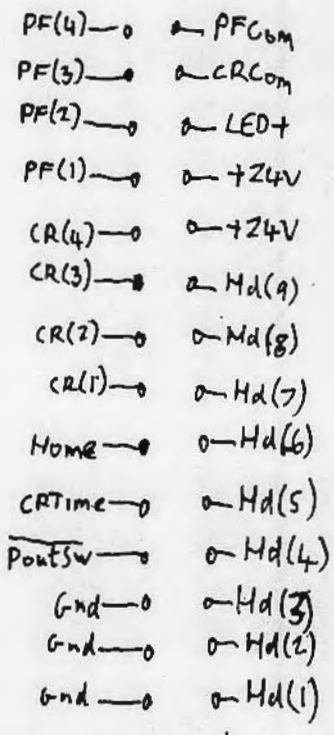 PF(4) PFCom
PF(3) CRCom
PF(2) LED+
PF(1) +24V
CR(4) +24V
CR(3) Hd(9)
CR(2) Hd(8)
CR(1) Hd(7)
Home Hd(6)
CRTime Hd(5)
PoutSw Hd(4)
Gnd Hd(3)
Gnd Hd(2)
Gnd Hd(1)